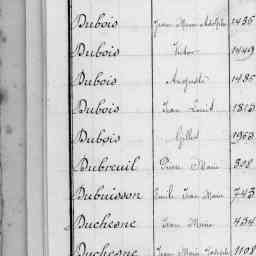 Dubois Jean Marie Adolphe 1436
Dubois Victor 1449
Dubois Auguste 1485
Dubois Jean Louis 1813
Dubois Gilles 1953
Dubreuil Pierre Marie 308
Dubuisson Emile Jean Marie 743
Duchesne Jean Marie 434
Duchesne Jean Marie 1108